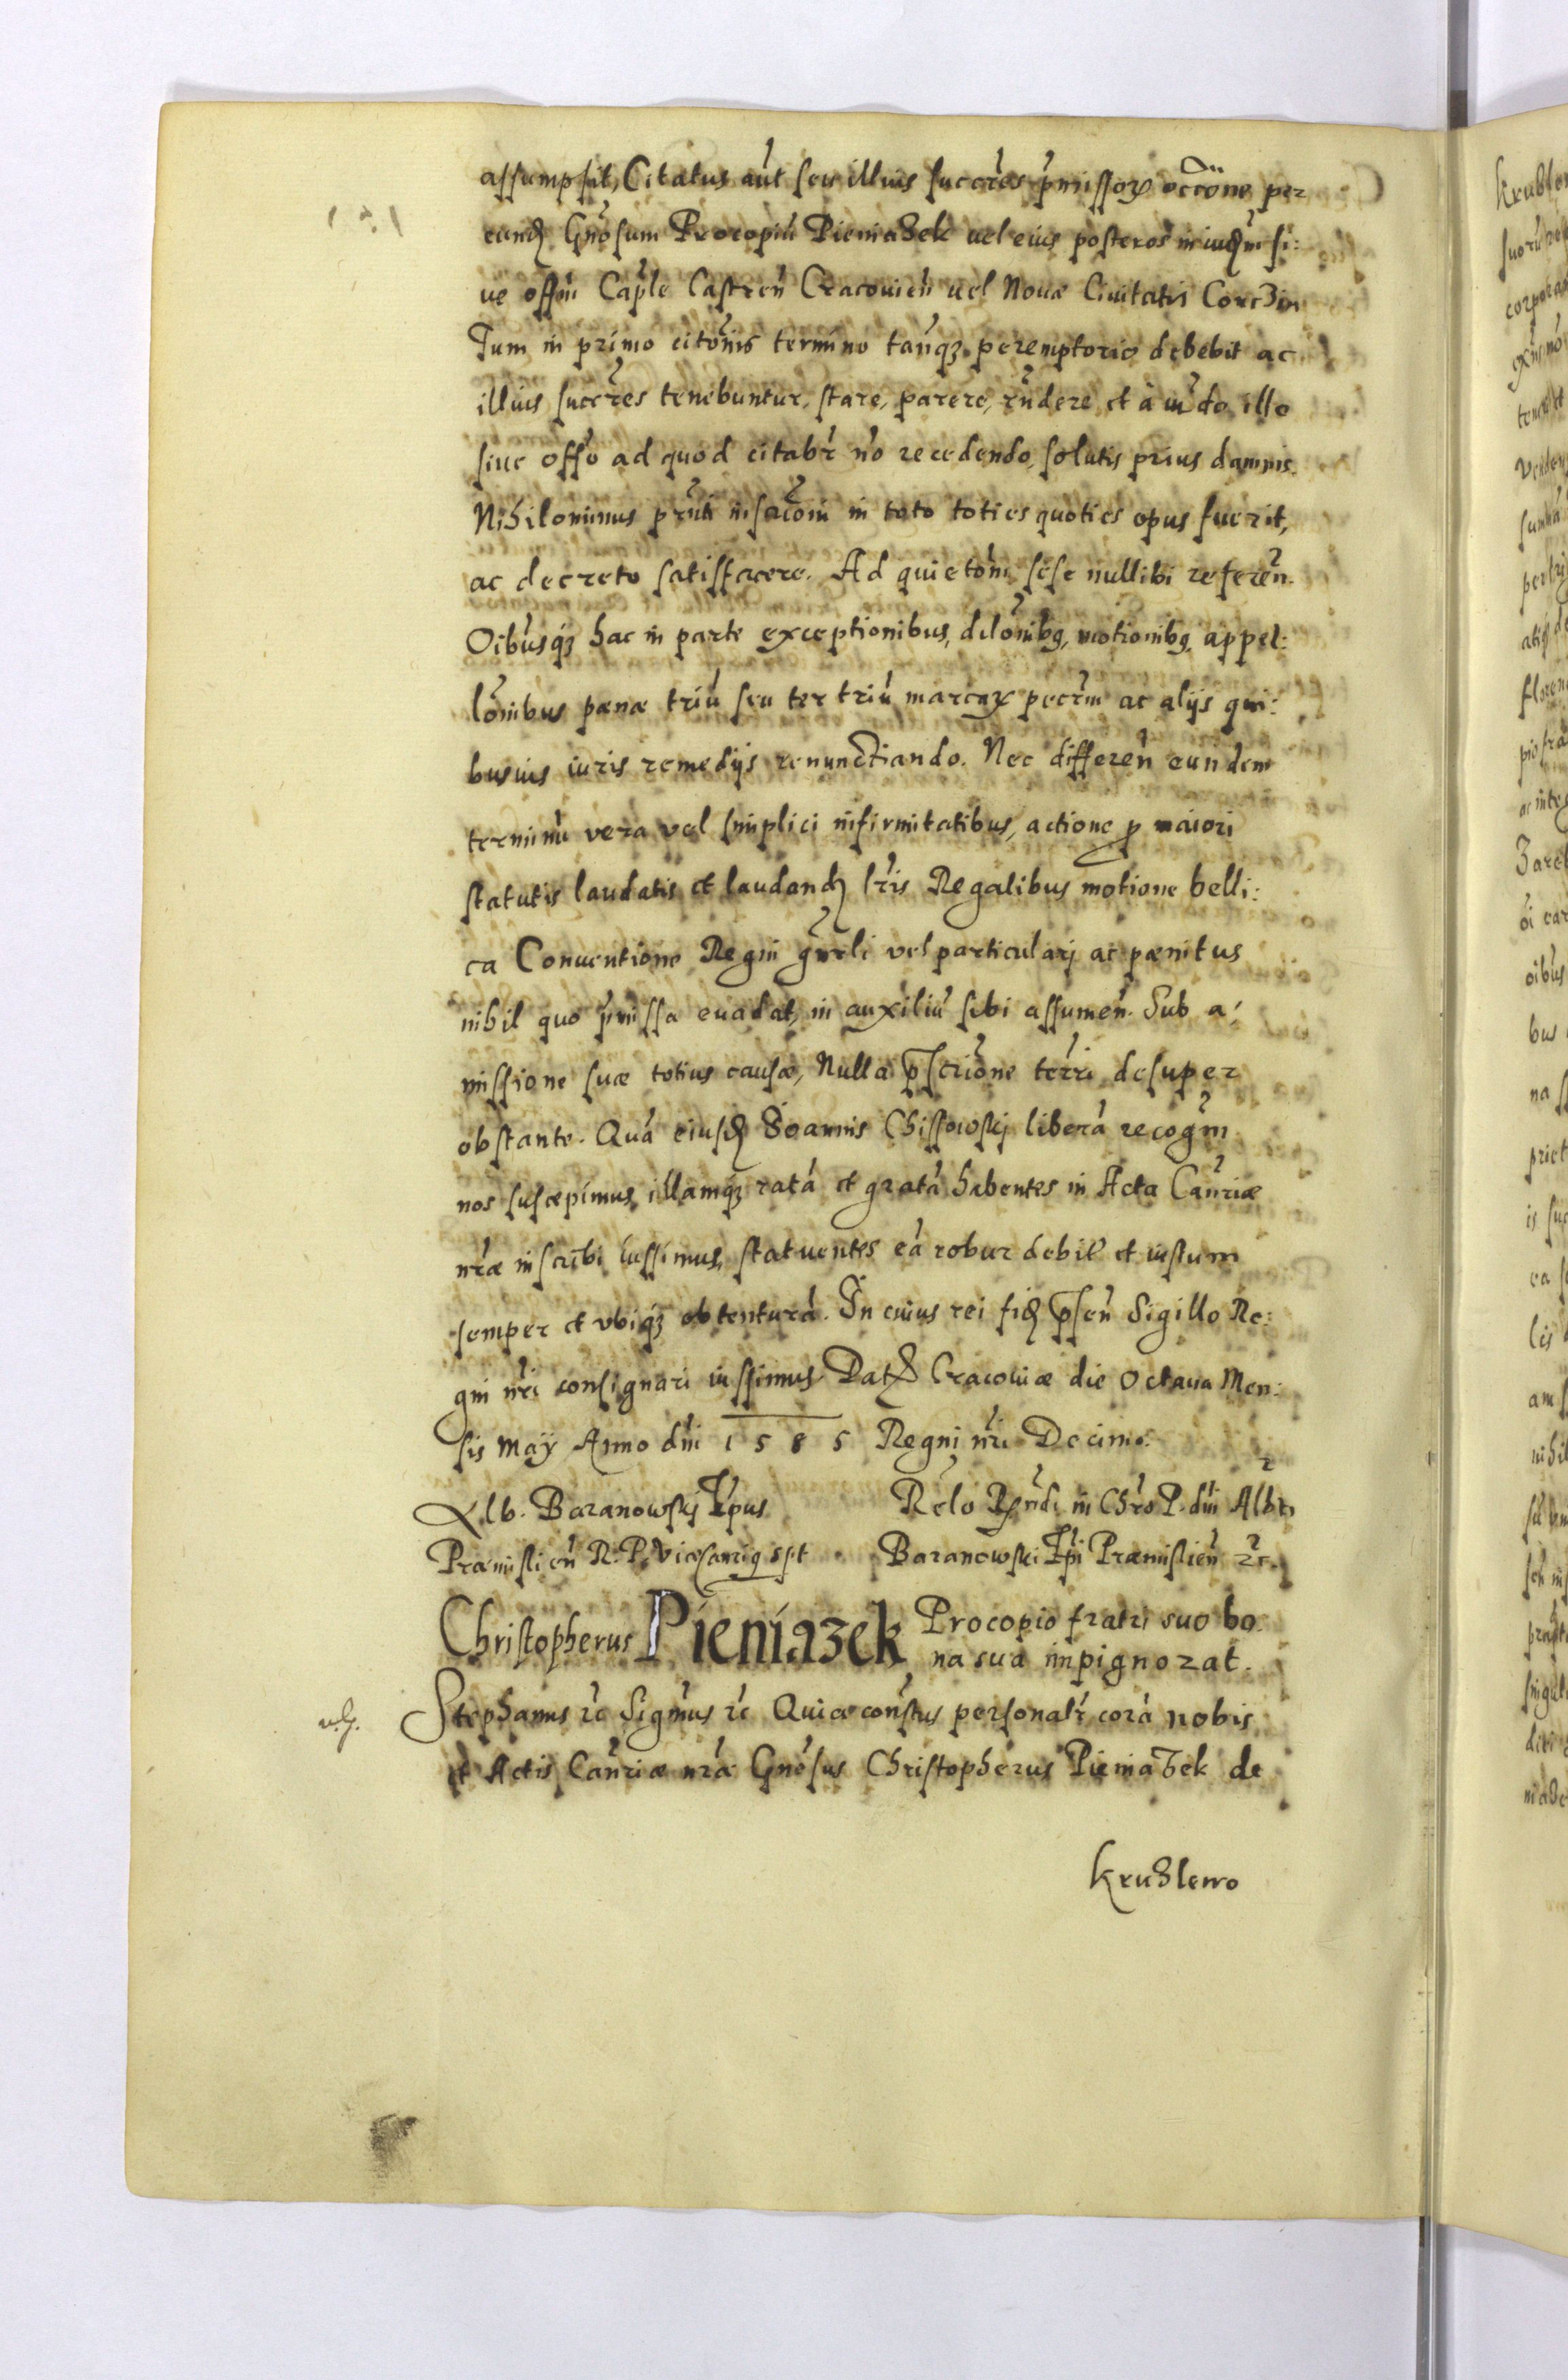 assumpsit, Citatus aut seu illius succres pmissoꝝ occone per
eundꝫ Gnosum Procopiu Pieniaʒek uel eius posteros in iudm si:
ue offm Caple Castren Cracovien uel Novæ Civitatis Corcʒin
Tum in primo citonis termino tanqꝫ peremptorio debebit ac
illius succres tenebuntur, stare, parere, rndere et à iudo illo
sive offo ad quod citabr no recedendo, solutis prius damnis.
Nihilominus prnti inscroni in toto toties quoties opus fuerit,
ac decreto satisfacere. Ad quietoni sese nullibi referen.
Oibusqꝫ hac in parte exceptionibus, dilonibꝫ, motionibꝫ, appel:
lonibus pænæ triu seu ter triu marcaꝝ pecrm ac alijs qui:
busvis iuris remedijs renunctiando. Nec differen eundem
terminu vera vel simplici infirmitatibus, actione p maiori
statutis laudatis et laudandꝫ lris Regalibus motione belli:
ca Conventione Regni gnrli vel particularj ac pænitus
nihil quo pmissa evadat, in auxiliu sibi assumen. Sub a:
missione suæ totius causæ, Nulla pscrione terri desuper
obstante. Qua eiusdꝫ Joannis Chissowskj libera recognm
nos suscæpimus, illamqꝫ rata et grata habentes in Acta Canriæ
nræ inscribi iussimus, statuentes ea robur debit et iustum
semper et ubiqꝫ obtentura. In cuius rei fidꝫ psen Sigillo Re:
gni nri consignari iussimus. Datꝫ Cracoviæ die Octava Men:
sis Maÿ Anno dni 1585 Regni nri Decimo.
Alb. Baranowskj Epus
Præmislien R. P. Vicæcanriꝰ spt
Relo Rndi in Chro P. dni Albti
Baranowski Epi Præmislien ꝛc.
Christopherus Pieniazek Procopio fratri suo bo:
na sua impignorat.
Stephanus ꝛc Sigmus ꝛc Quia constus personalr cora nobis
et Actis Canriæ nræ Gnosus Christopherus Pieniaʒek de
Kruʒlewo